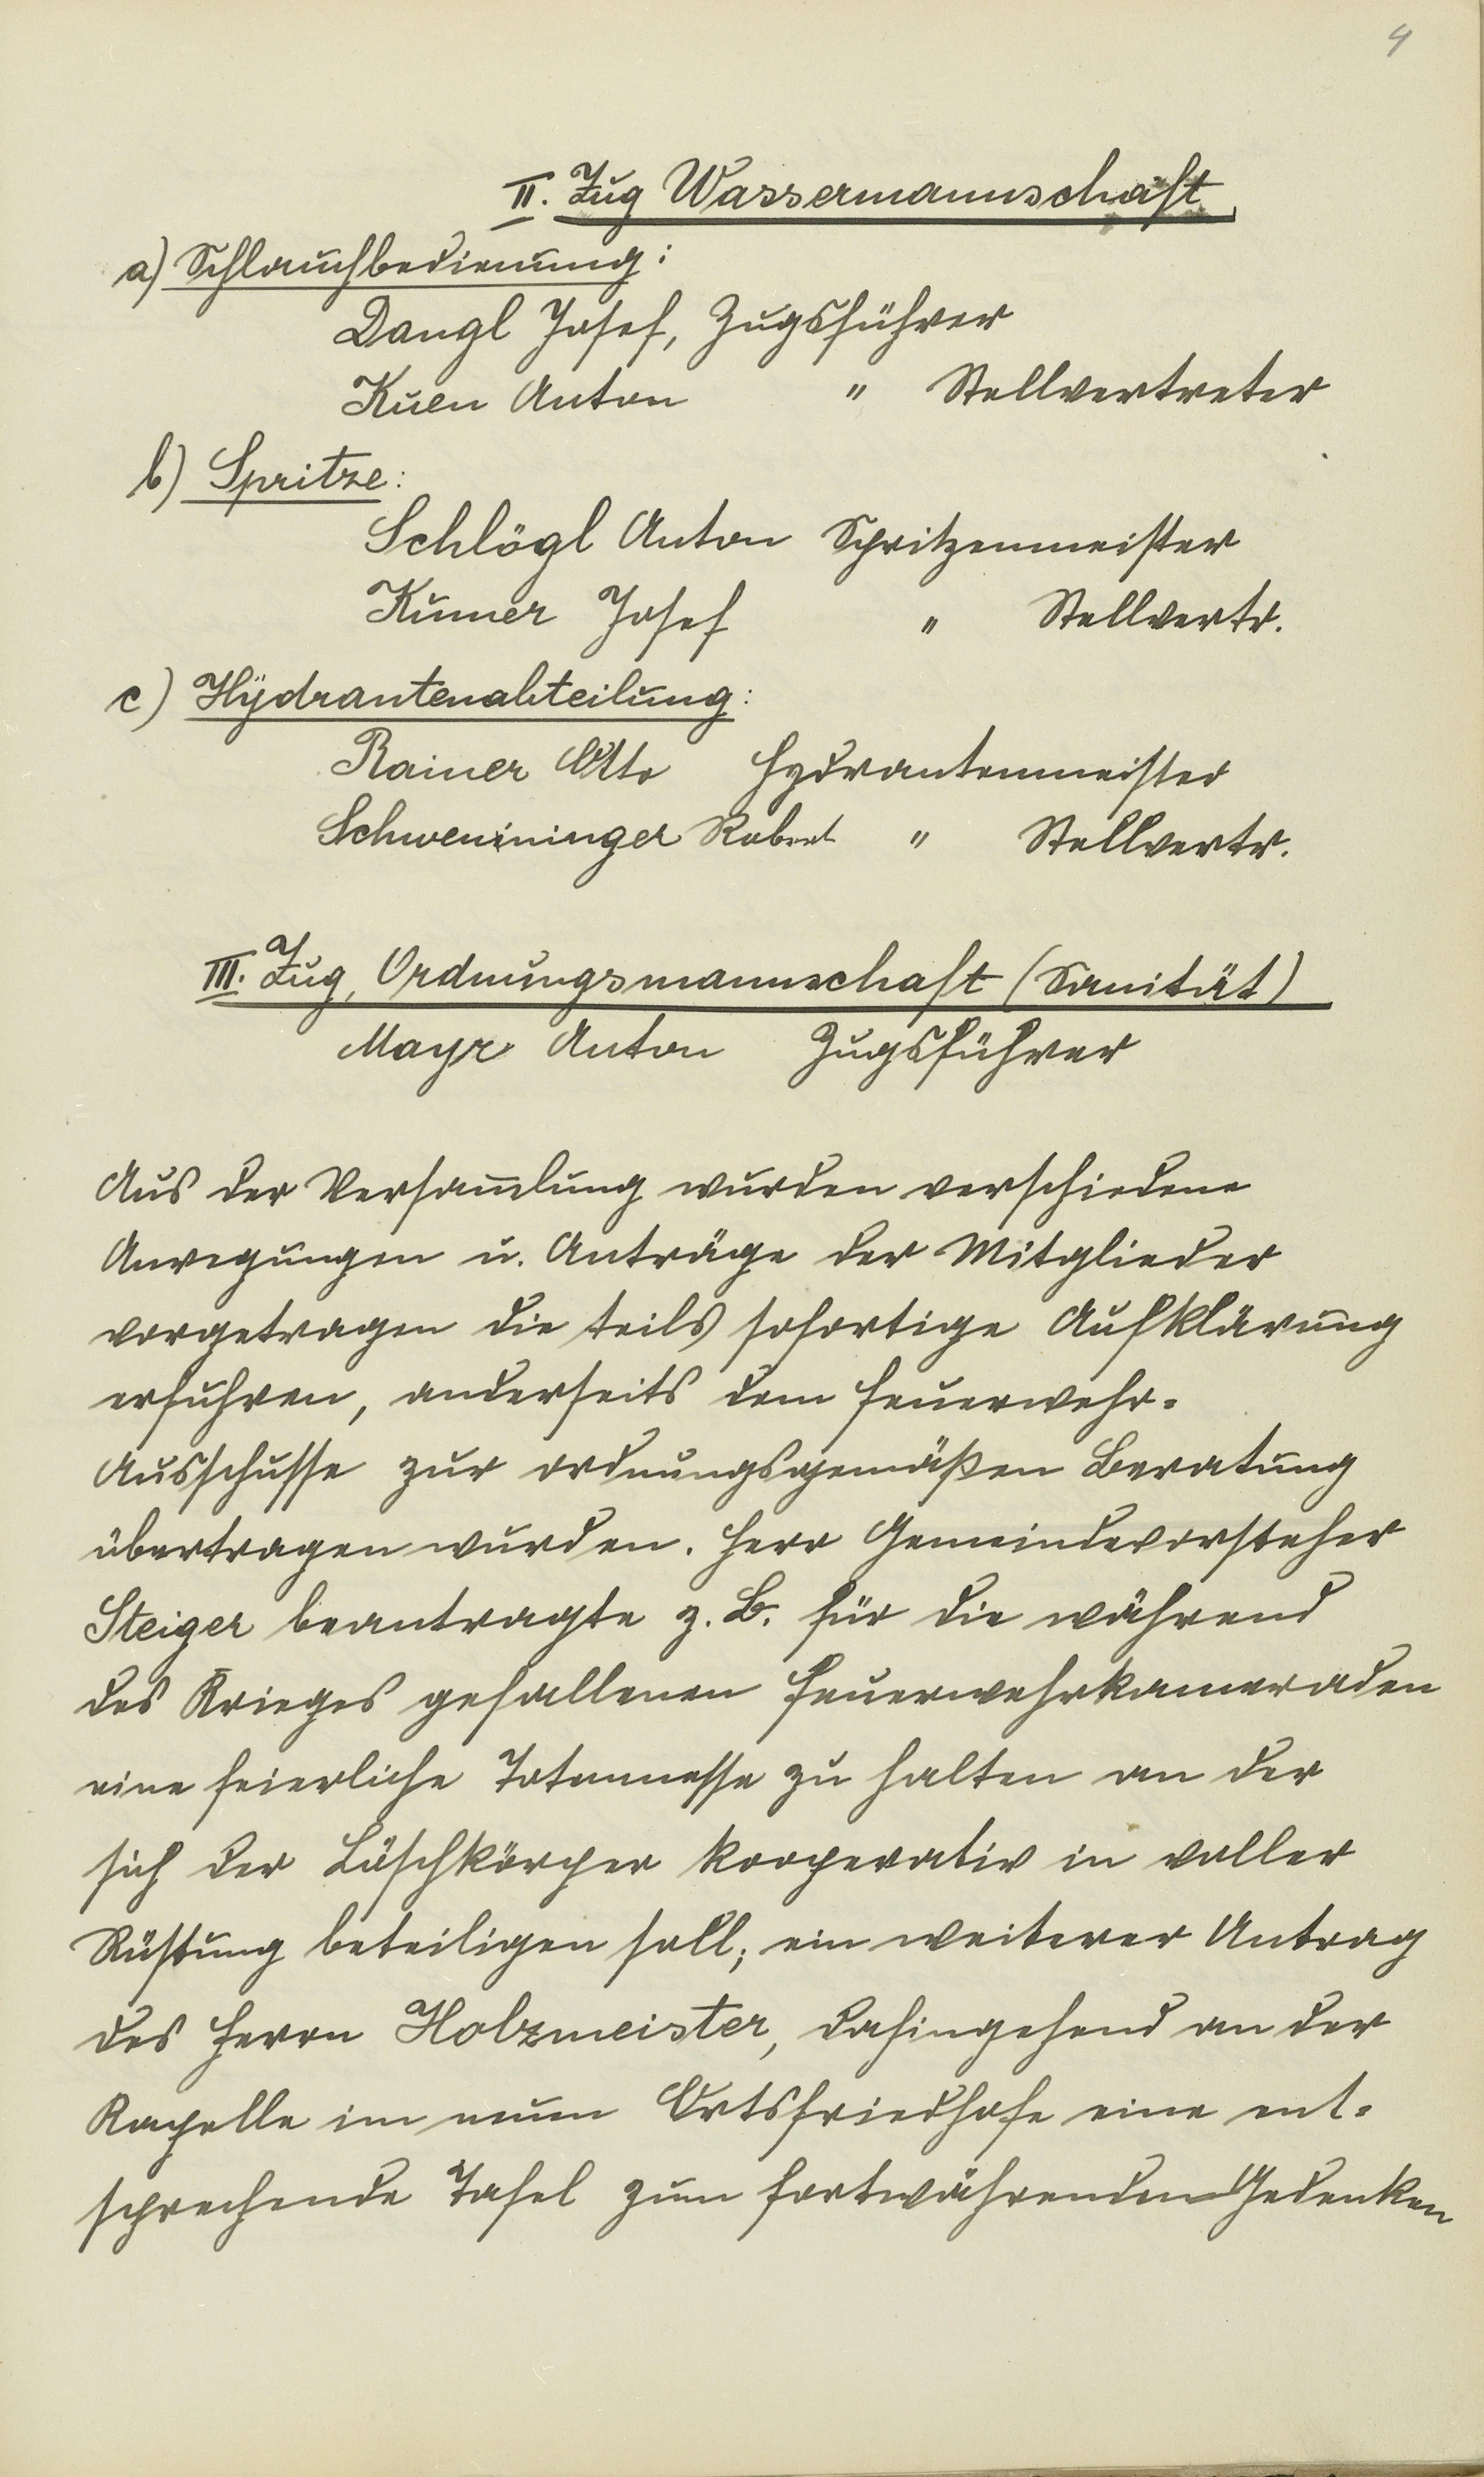 4
II. Zug Wassermannschaft
a) Schlauchbedienung:
Dangl Josef, Zugsführer
Kuen Anton " Stellvertreter
b) Spritze:
Schlögl Anton Spritzenmeister
Josef " Stellvertr.
c) Hydrantenabteilung:
Rainer Otto Hydrantenmeister
Schwenininger Robert " Stellvertr.
III. Zug, Ordnungsmannschaft (Sanität)
Mayr Anton Zugsführer
Aus der Versam̄lung wurden verschiedene
Anregungen u. Anträge der Mitglieder
vorgetragen die teils sofortige Aufklärung
erfuhren, anderseits dem Feuerwehr-
Ausschusse zur ordnungsgemäßen Beratung
übertragen wurden. Herr Gemeindevorsteher
Steiger beantragte z. B. für die während
des Krieges gefallenen Feuerwehrkameraden
eine feierliche Totenmesse zu halten an der
sich der Löschkörper kooperativ in voller
Rüstung beteiligen soll; ein weiterer Antrag
des Herrn Holzmeister, dahingehend an der
Kapelle im neuen Ortsfriedhofe eine ent-
sprechende Tafel zum fortwährenden Gedenken